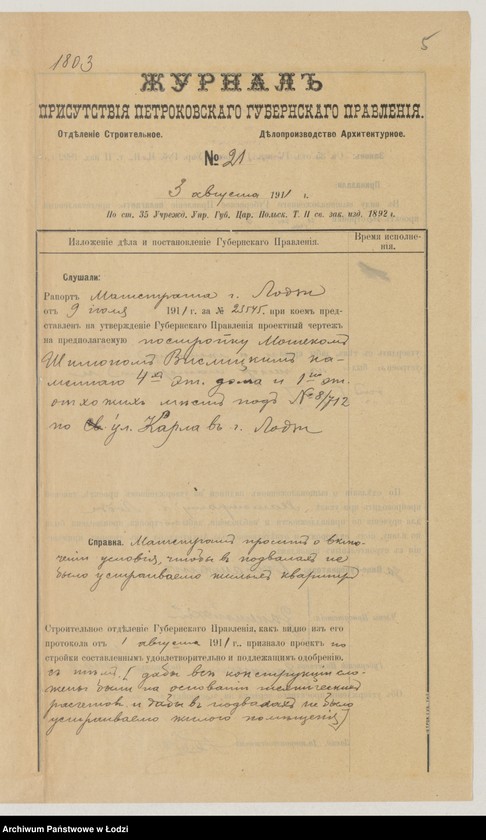 5
1803
ЖУРНАЛЪ
ПРИСУТСТВІЯ ПЕТРОКОВСКАГО ГУБЕРНСКАГО ПРАВЛЕНІЯ.
Отдѣленіе Строительное. Дѣлопроизводство Архитектурное.
№ 21
3 августа 1911 г.
По ст. 35 Учрежд. Упр. Губ. Цар. Польск. Т. II св. зак. изд. 1892 г.
Изложеніе дѣла и постановленіе Губернскаго Правленія. Время исполненія.
Слушали:
Рапортъ Магистрата г. Лодзи
отъ 9 іюля 1911 г. за № 23545, при коемъ пред-
ставленъ на утвержденіе Губернскаго Правленія проектный чертежъ
на предполагаемую постройку Мошекомъ
Шимономъ Вислицкимъ ка-
меннаго 4хъ эт. дома и 1но эт.
отхожихъ мѣстъ подъ № 8/712
по ул. Карла въ г. Лодзи
Справка. Магистратъ проситъ о вклю-
ченіи условія, чтобы въ подвалахъ не
было устраиваемо жилыхъ квартиръ
Строительное отдѣленіе Губернскаго Правленія, какъ видно изъ его
протокола отъ 1 августа 1911 г. признало проектъ по
стройки составленнымъ удовлетворительно и подлежащимъ одобренію,
съ тѣмъ, дабы всѣ конструкціи сло-
жены были на основаніи техническихъ
расчетовъ и дабы въ подвалахъ не было
устраиваемо жилого помѣщенія
Archiwum Państwowe w Łodzi